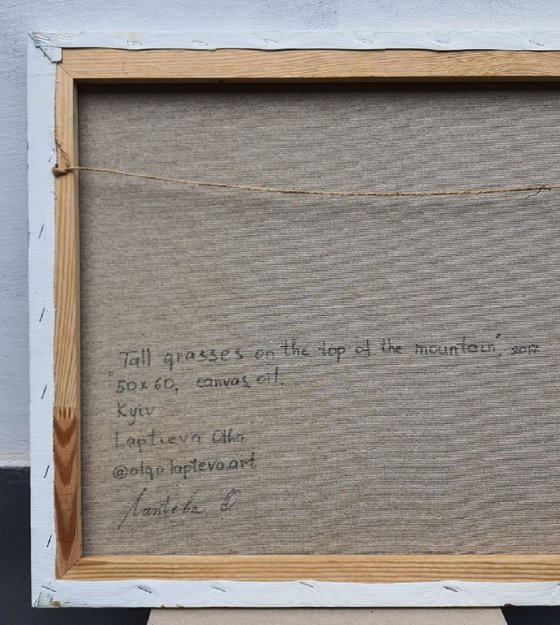 "Tall grasses on the top of the mountain", 2017
50x60, canvas, oil.
Kyiv
Laptieva Olha
@olga.lapteva.art
Лаптєва О